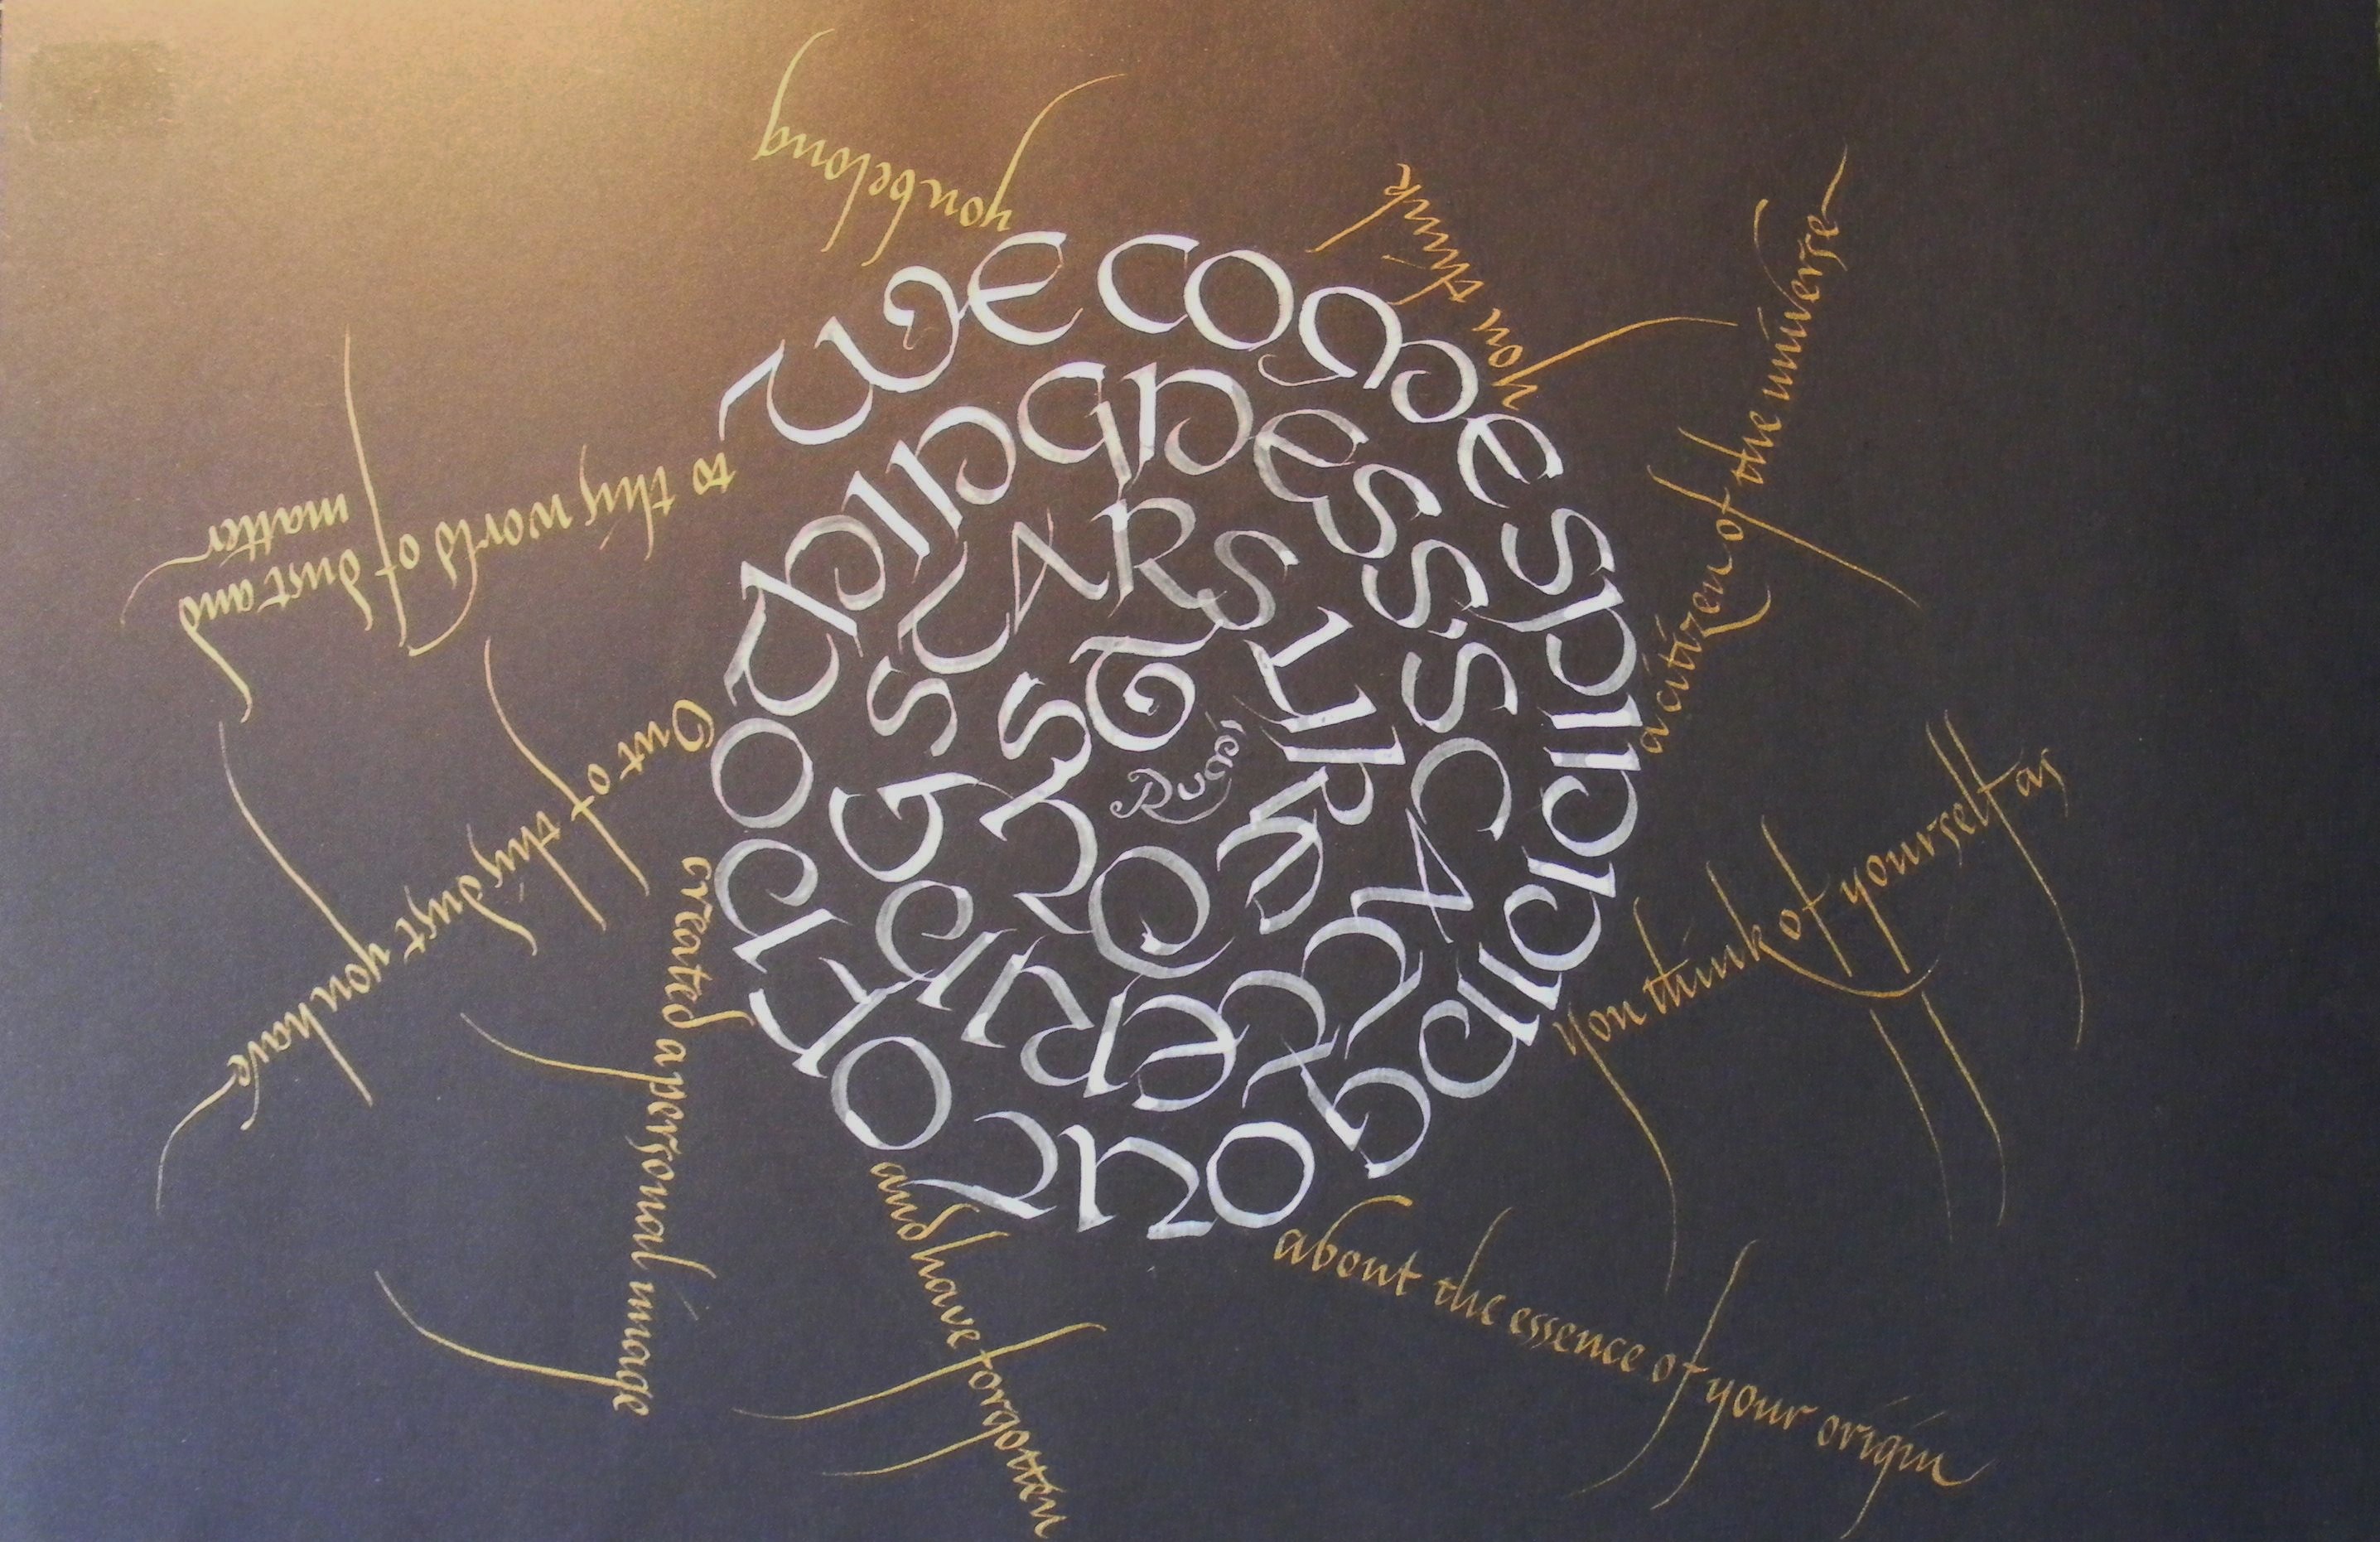 we come spinning out of nothingness, scattering stars like dust
Rumi
you think of yourself as
a citizen of the universe
you think
you belong
to this world of dust and
matter
Out of this dust you have
created a personal image
and have forgotten
about the essence of your origin